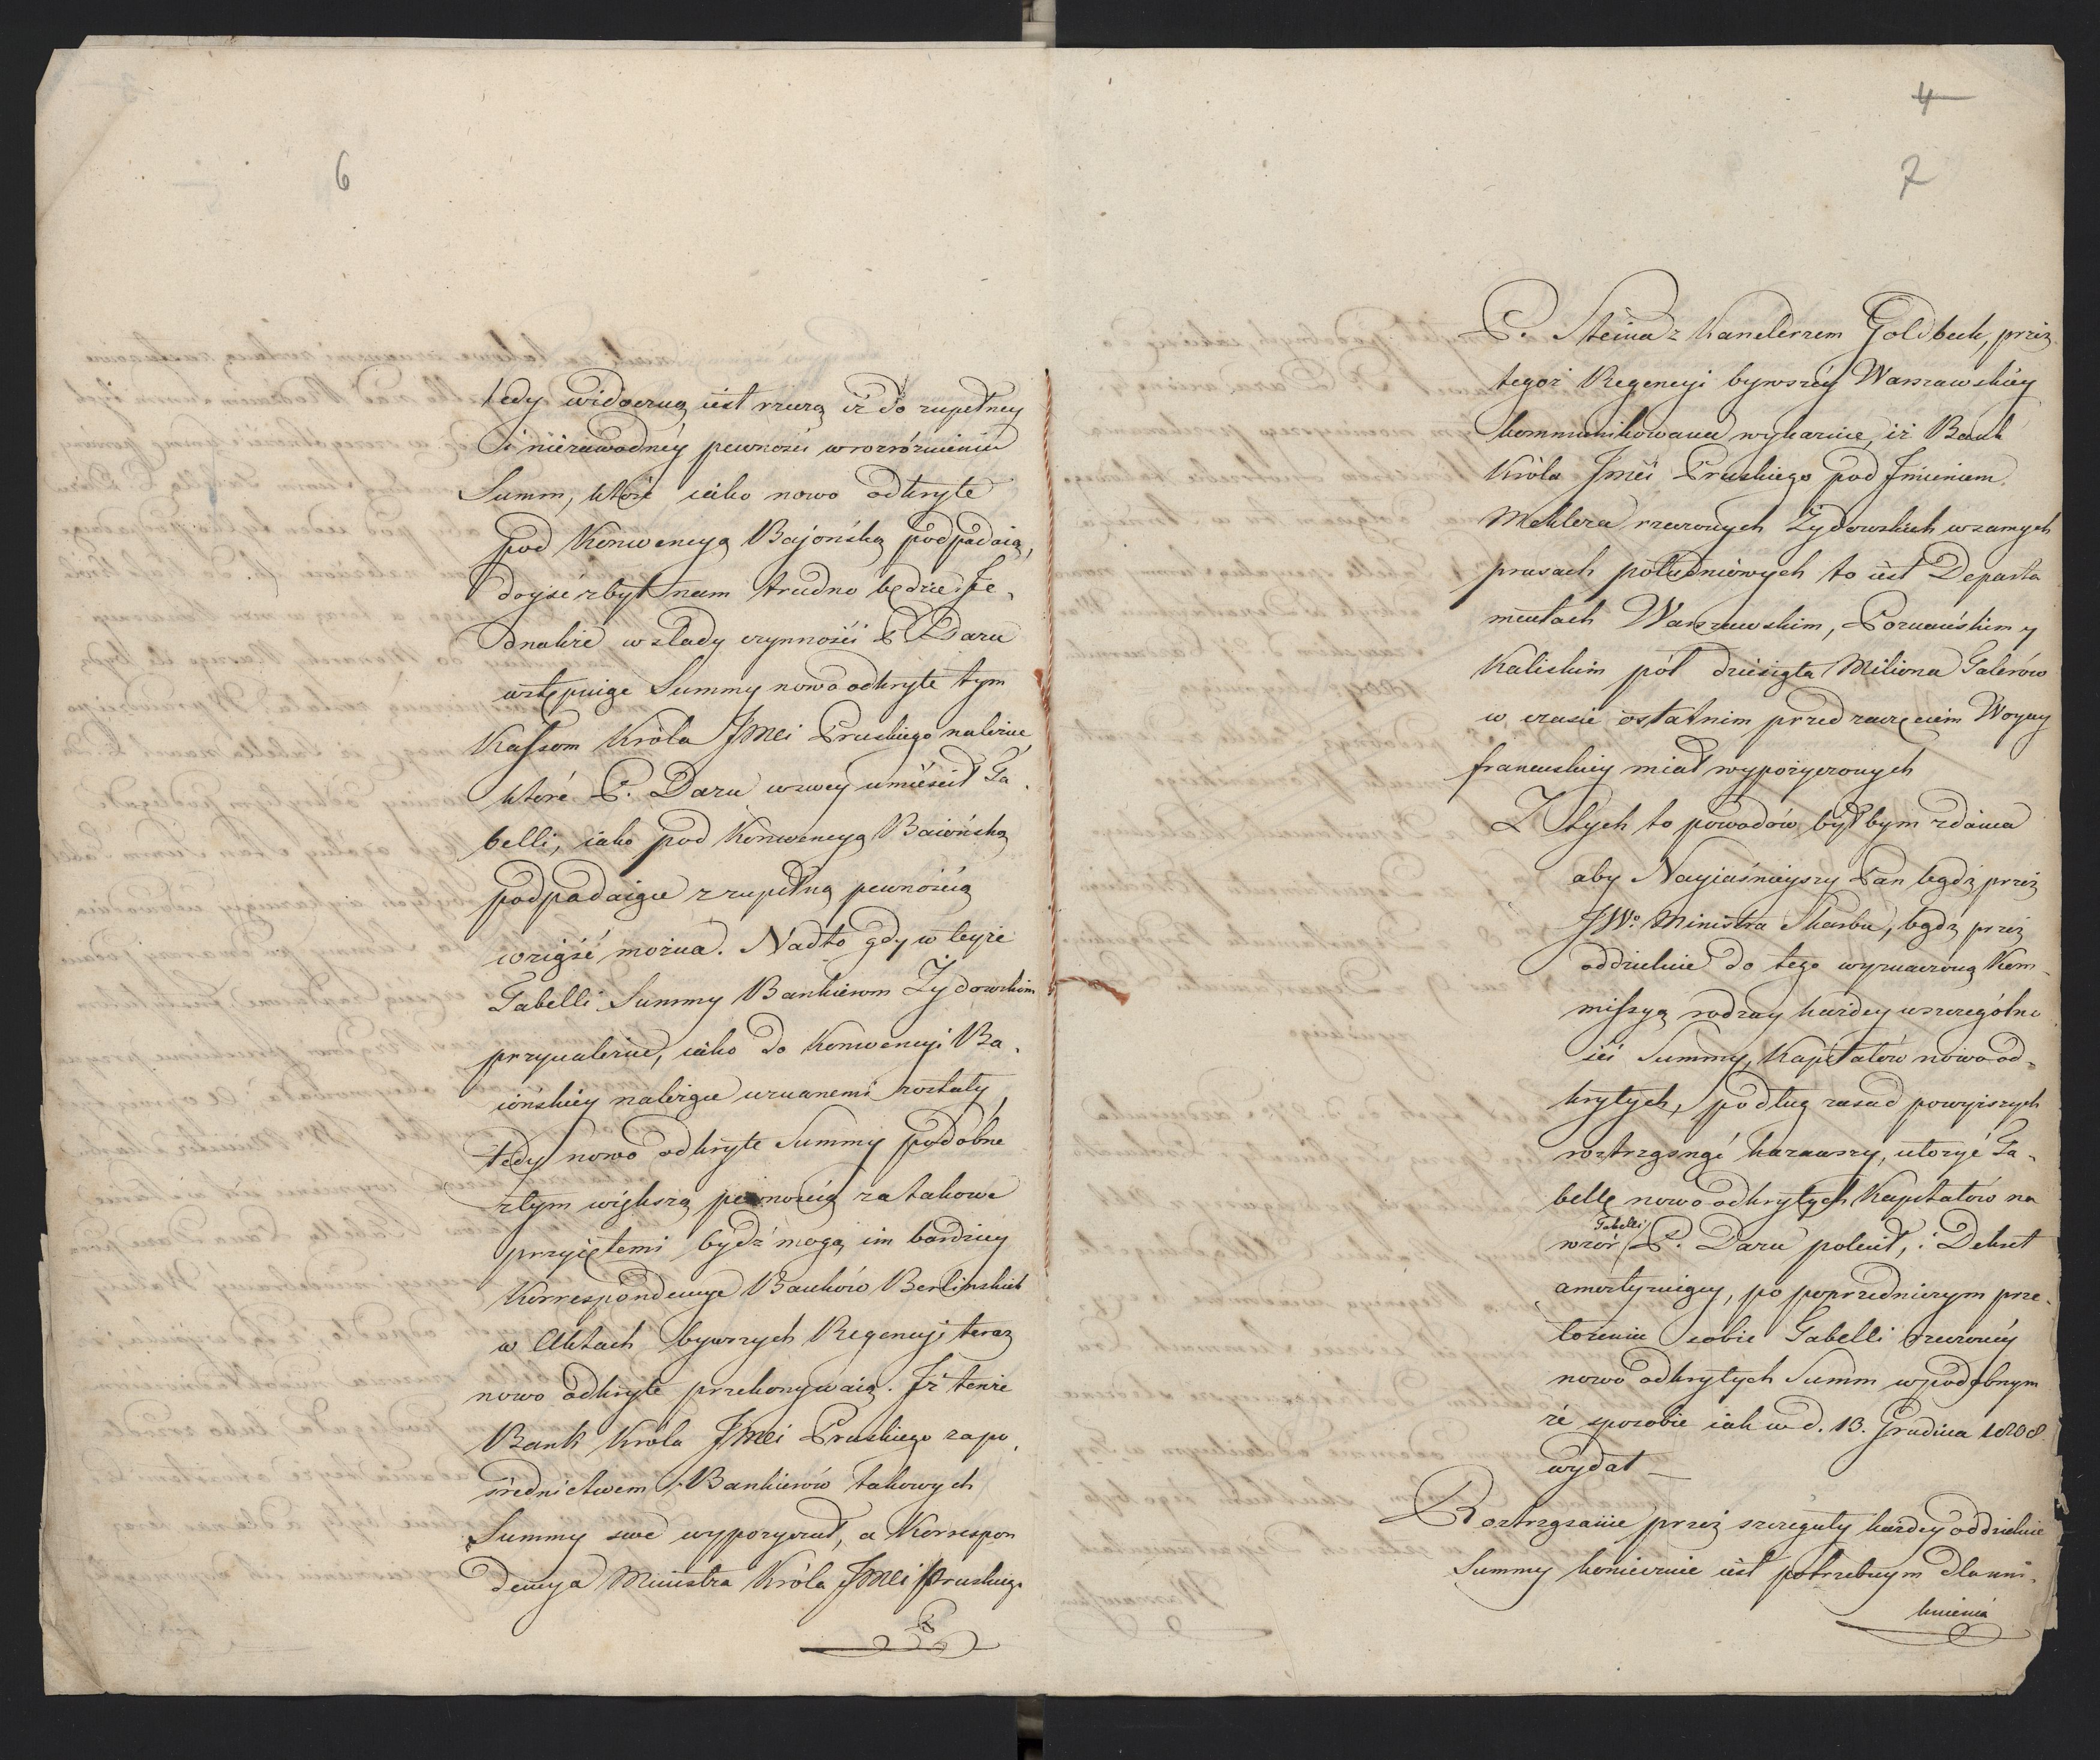 6
tedy widoczną iest rzeczą iż do zupełney
i niezawodnéy pewności w rozróżnieniu
Summ, które iako nowo odkryte
pod Konwencyą Bajońską podpadaią,
doyśc zbyt nam trudno będzie. Je-
dnakże w slady czynności P. Daru
wstępuiąc Summy nowo odkryte tym
Kassom Króla Jmci Pruskiego należne,
które P. Daru w swey umieścił Ta-
belli, iako pod Konwencyą Baiońską
podpadaiące z zupełną pewnością
wziąść można. Nadto gdy w teyże
Tabelli Summy Bankierom Żydowskim
przynależne, iako do Konwencyi Ba-
iońskiey należące uznanemi zostały,
tedy nowo odkryte Summy podobne
z tym większą pewnością za takowe
przyiętemi bydź mogą im bardziey
Korrespondencye Banków Berlinskich
w Aktach bywszych Regencyi teraz
nowo odkryte przekonywaią. Iż tenże
Bank Króla Jmci Pruskiego za po-
srednictwem Bankierów takowych
Summy swe wypożyczał, a Korrespon
dencya Ministra Króla Jmci Pruskiego
P.
4
7
P. Steina z Kanclerzem Goldbeck, przez
tegoż Regencyi bywszéy Warszawskiey
kommunikowana wykazuie, iż Bank
Króla Jmci Pruskiego pod Jmieniem
Meklera rzeczonych Żydowskich w samych
prusach południowych to iest Departa
mentach Warszawskim, Poznańskim y
Kaliskim pół dziesięta Miliona Talerów
w czasie ostatnim przed zaczęciem Woyny
francuskiey miał wypożyczonych
Z tych to powodów, był bym zdania
aby Nayiaśnieyszy Pan bądź przez
JWo. Ministra Skarbu, bądź przez
oddzielnie do tego wyznaczoną Kom-
missyą rodzay każdey w szczególno
ści Summy, Kapitałów nowo od-
krytych, podług zasad powyższych
roztrząsnąć kazawszy, ułożyć Ta-
bellę nowo odkrytych Kapitałów na
Tabelli
wzór P. Daru polecił, i Dekret
amortyzuiący, po poprzedniczym prze-
łożeniu sobie Tabelli rzeczonéy
nowo odkrytych Summ w podobnym
że sposobie iak w d. 13. Grudnia 1808
wydał —
Roztrząsanie przez szczeguły każdey oddzielnie
Summy koniecznie iest potrzebnym dla uni-
knienia